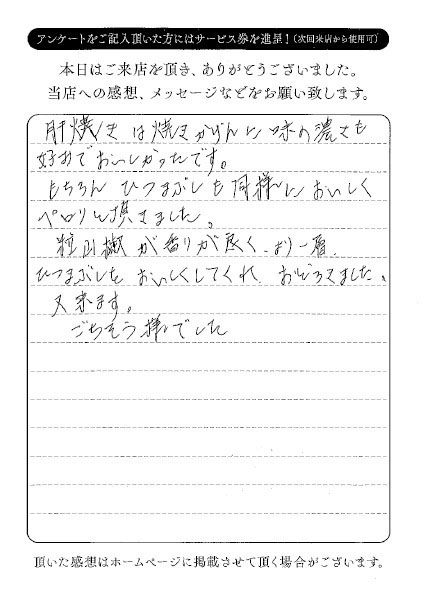 アンケートをご記入頂いた方にはサービス券を進呈！（次回来店から使用可）
本日はご来店を頂き、ありがとうございました。
当店への感想、メッセージなどをお願い致します。
肝焼きは焼きかげんに味の濃さも
好みでおいしかったです。
もちろん ひつまぶしも同様においしく
ペロリと頂きました。
粒山椒が香りが良く、より一層、
ひつまぶしをおいしくしてくれ、おどろきました。
又来ます。
ごちそう様でした
頂いた感想はホームページに掲載させて頂く場合がございます。